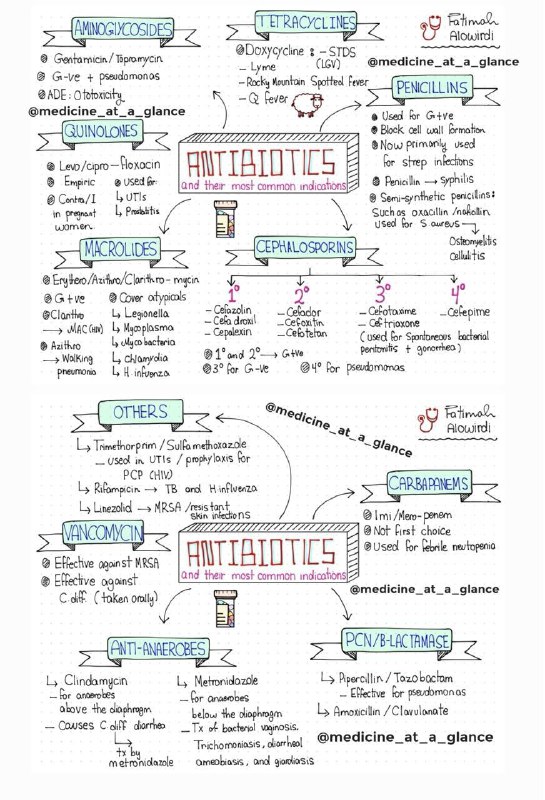 AMINOGLYCOSIDES
Gentamicin/Topramycin
G-ve + pseudomonas
ADE: Ototoxicity
@medicine_at_a_glance
TETRACYCLINES
Doxycycline: - STDS
(LGV)
- Lyme
- Rocky Mountain Spotted fever
- Q fever
Fatimah
Alowirdi
@medicine_at_a_glance
PENICILLINS
Used for G+ve
Block cell wall formation
Now primarily used
for strep infections
Penicillin → syphilis
Semi-synthetic penicillins:
Such as oxacillin/nafcillin
used for S aureus
Osteomyelitis
cellulitis
QUINOLONES
Levo/cipro-floxacin
Empiric
Contra/I
in pregnant
women
Used for:
↳ UTIs
↳ Prostatitis
ANTIBIOTICS
and their most common indications
MACROLIDES
Erythero/Azithro/Clarithro-mycin
G+ve
Claritho
→ MAC (HIV)
Azithro
→ Walking
pneumonia
Cover atypicals
↳ Legionella
↳ Mycoplasma
↳ Mycobacteria
↳ Chlamydia
↳ H infuenza
CEPHALOSPORINS
1°
- Cefazolin
- Cefadroxil
- Cepalexin
2°
- Cefaclor
- Cefoxitin
- Cefotetan
3°
- Cefotaxime
- Ceftriaxone
(used for Spontaneous bacterial
peritonitis + gonorrhea)
4°
- Cefepime
1° and 2° → G+ve
3° for G-ve
4° for pseudomonas
OTHERS
↳ Trimethorprim/Sulfamethoxazole
- used in UTIs / prophylaxis for
PCP (HIV)
↳ Rifampicin → TB and H influenza
↳ Linezolid → MRSA/resistant
skin infections
@medicine_at_a_glance
Fatimah
Alowirdi
CARBAPANEMS
Imi/Mero-penem
Not first choice
Used for febrile neutopenia
@medicine_at_a_glance
VANCOMYCIN
Effective against MRSA
Effective against
C diff (taken orally)
ANTIBIOTICS
and their most common indications
ANTI-ANAEROBES
↳ Clindamycin
- for anaerobes
above the diaphragm
- Causes C diff diarrhea
↳ tx by
metronidazole
↳ Metronidazole
- for anaerobes
below the diaphragm
- Tx of bacterial vaginosis.
Trichomoniasis, diarrheal
ameobiasis, and giardiasis
PCN/B-LACTAMASE
↳ Pipercillin / Tazobactam
- Effective for pseudomonas
↳ Amoxicillin / Clavulanate
@medicine_at_a_glance